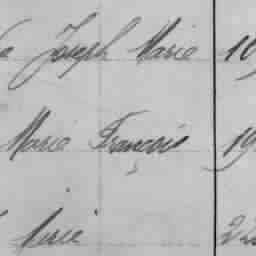 Joseph Marie 19
Marie François 19
Marie 22